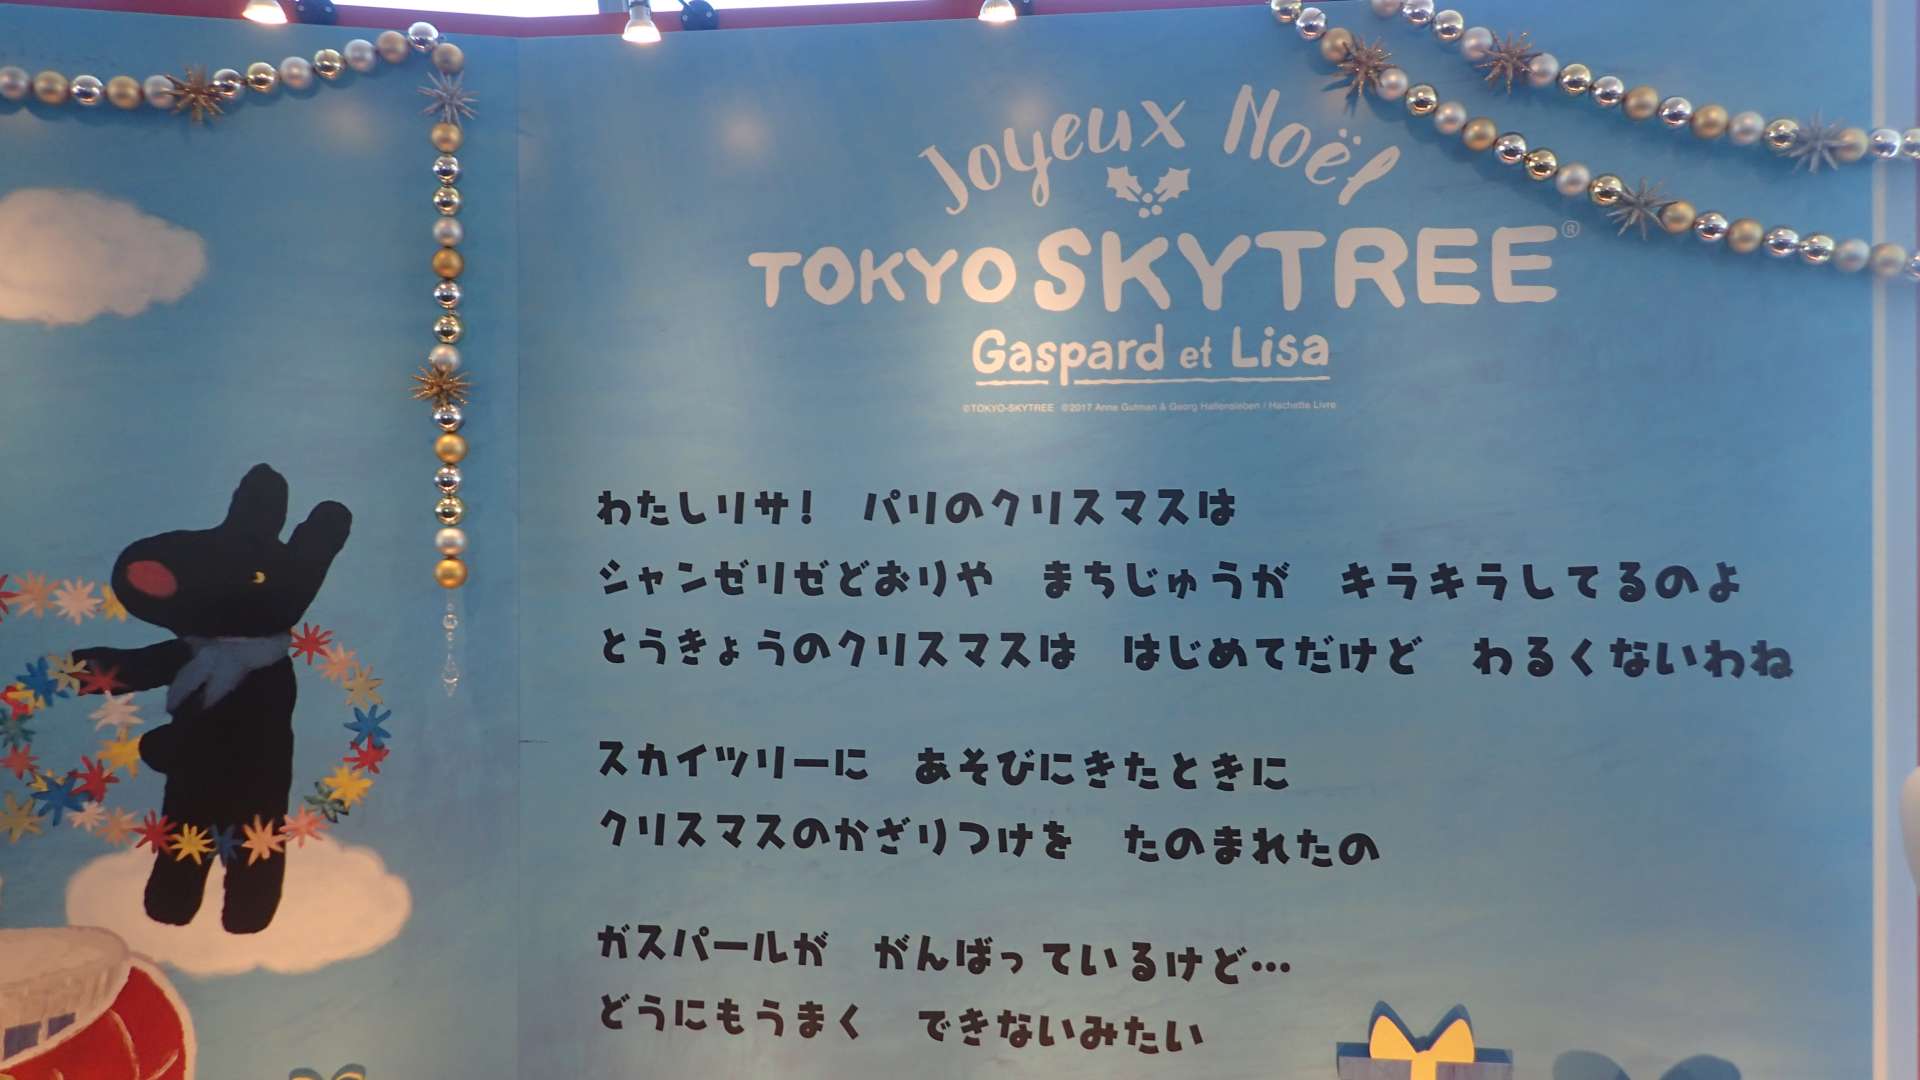 Joyeux Noël
TOKYO SKYTREE®
Gaspard et Lisa
©TOKYO-SKYTREE ©2017 Anne Gutman & Georg Hallensleben / Hachette Livre
わたしリサ！ パリのクリスマスは
シャンゼリゼどおりや まちじゅうが キラキラしてるのよ
とうきょうのクリスマスは はじめてだけど わるくないわね
スカイツリーに あそびにきたときに
クリスマスのかざりつけを たのまれたの
ガスパールが がんばっているけど…
どうにもうまく できないみたい